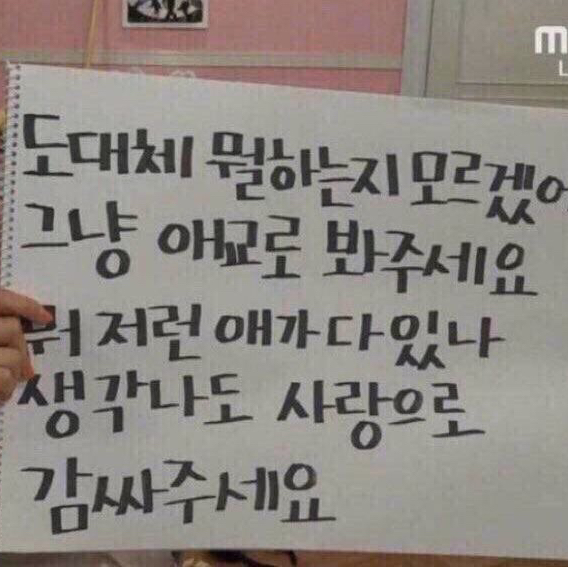 도대체 뭘하는지 모르겠어
그냥 애교로 봐주세요
뭐 저런 애가 다 있나
생각나도 사랑으로
감싸주세요